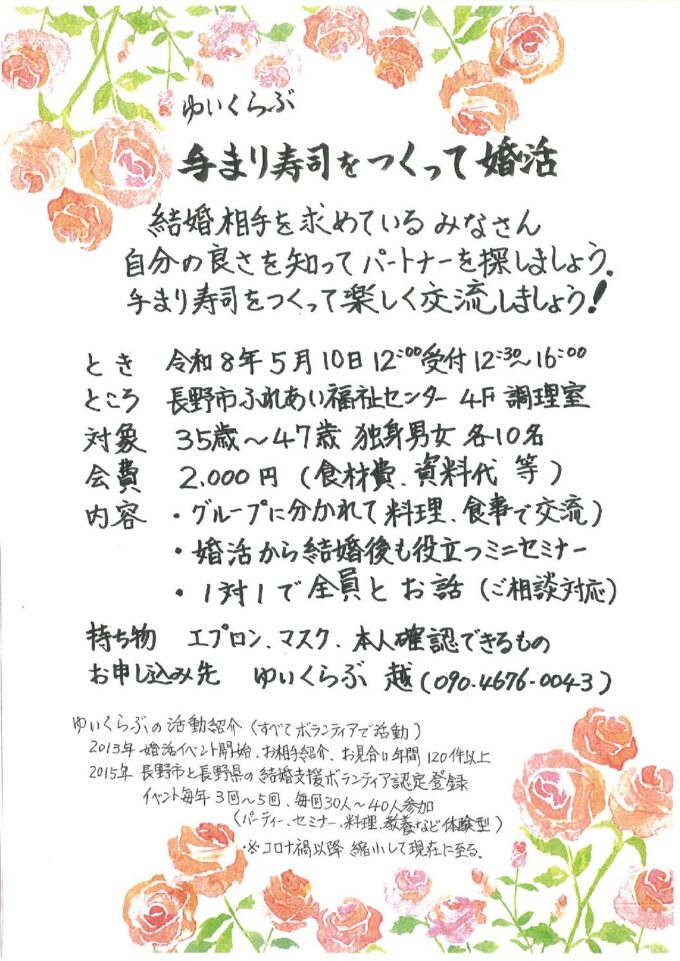 ゆいくらぶ
手まり寿司をつくって婚活
結婚相手を求めているみなさん
自分の良さを知ってパートナーを探しましょう。
手まり寿司をつくって楽しく交流しましょう!
とき 令和8年5月10日12:00受付12:30~16:00
ところ 長野市ふれあい福祉センター 4F 調理室
対象 35歳~47歳 独身男女 各10名
会費 2,000円(食材費、資料代 等)
内容 ・グループに分かれて料理、食事で交流)
・婚活から結婚後も役立つミニセミナー
・1対1で全員とお話(ご相談対応)
持ち物 エプロン、マスク、本人確認できるもの
お申し込み先 ゆいくらぶ 越(090-4676-0043)
ゆいくらぶの活動紹介(すべてボランティアで活動)
2013年 婚活イベント開始、お相手紹介、お見合い年間120件以上
2015年 長野市と長野県の結婚支援ボランティア認定登録
イベント毎年3回~5回、毎回30人~40人参加
(パーティー、セミナー、料理、教養など体験型)
・※コロナ禍以降 縮小して現在に至る。